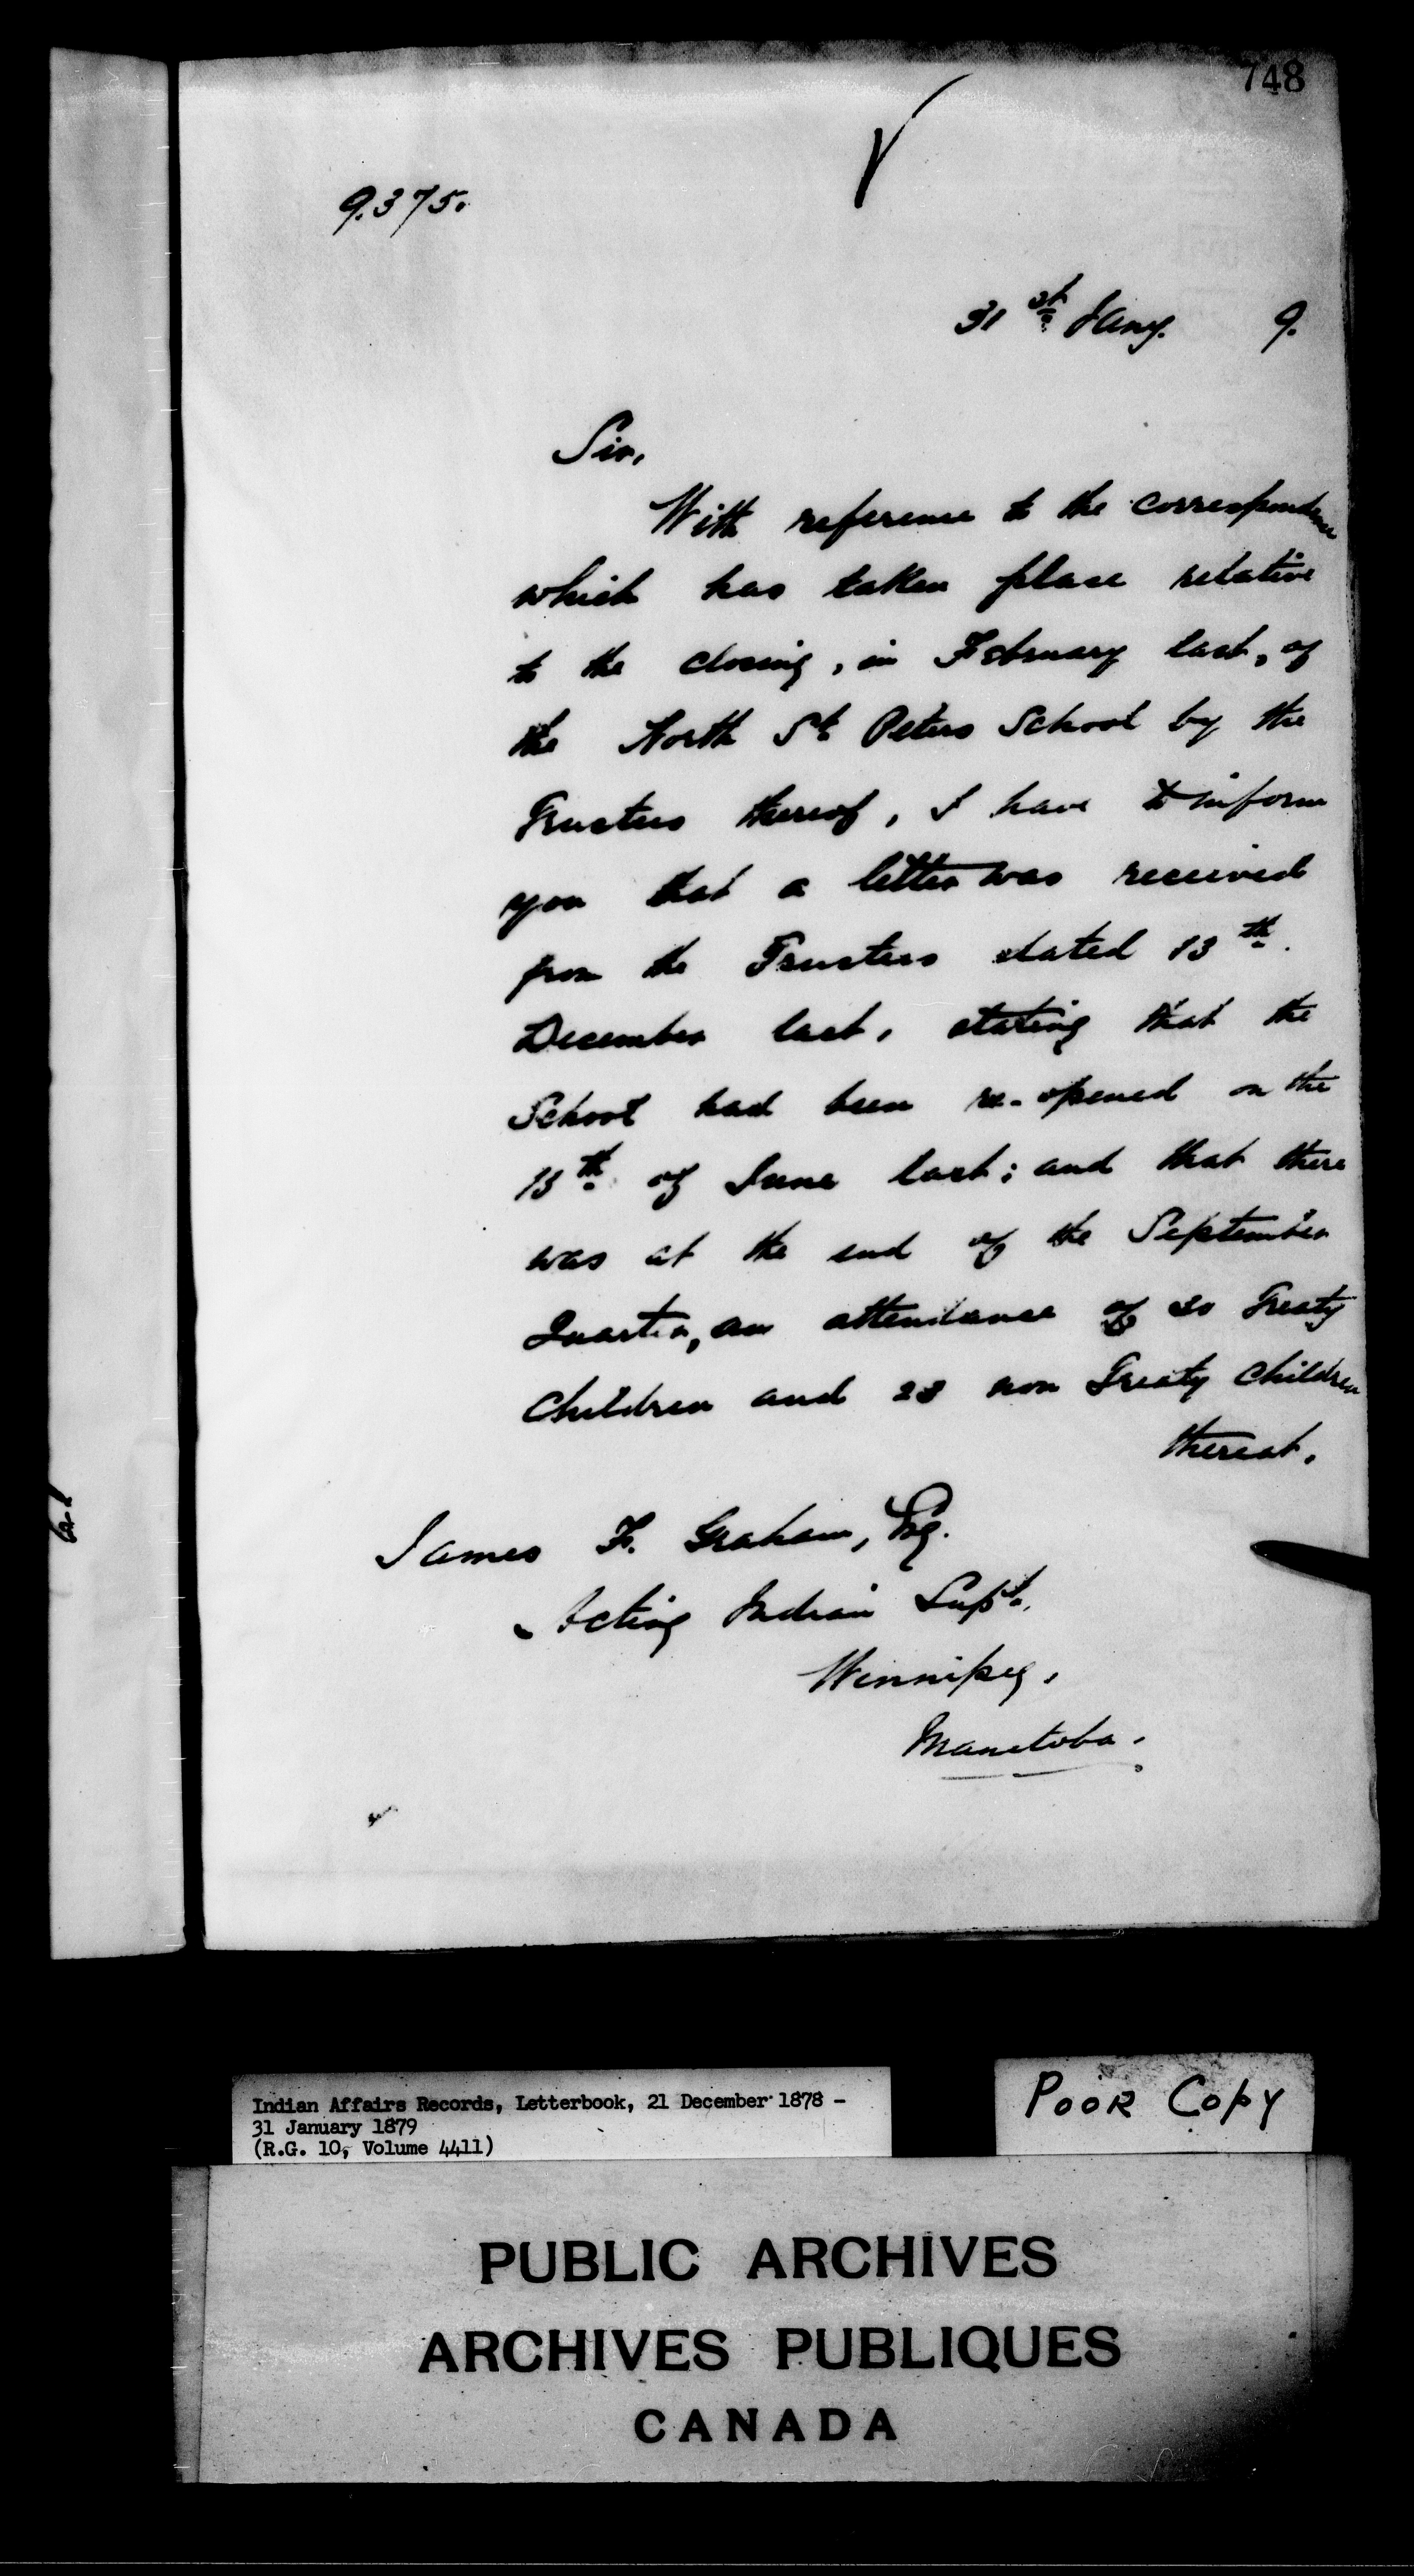 748
9.375.
31st Jany. 9.
Sir,
With reference to the correspondence
which has taken place relative
to the closing, in February last, of
the North St Peters School by the
Trustees thereof, I have to inform
you that a letter was received
from the Trustees dated 13th.
December last, stating that the
School had been re-opened on the
13th of June last; and that there
was at the end of the September
Quarter, an attendance of 20 Treaty
Children and 28 non Treaty Children
thereat.
James F. Graham, Esq.
Acting Indian Supt.,
Winnipeg,
Manitoba.
Indian Affairs Records, Letterbook, 21 December 1878 -
31 January 1879
(R.G. 10, Volume 4411)
POOR COPY
PUBLIC ARCHIVES
ARCHIVES PUBLIQUES
CANADA